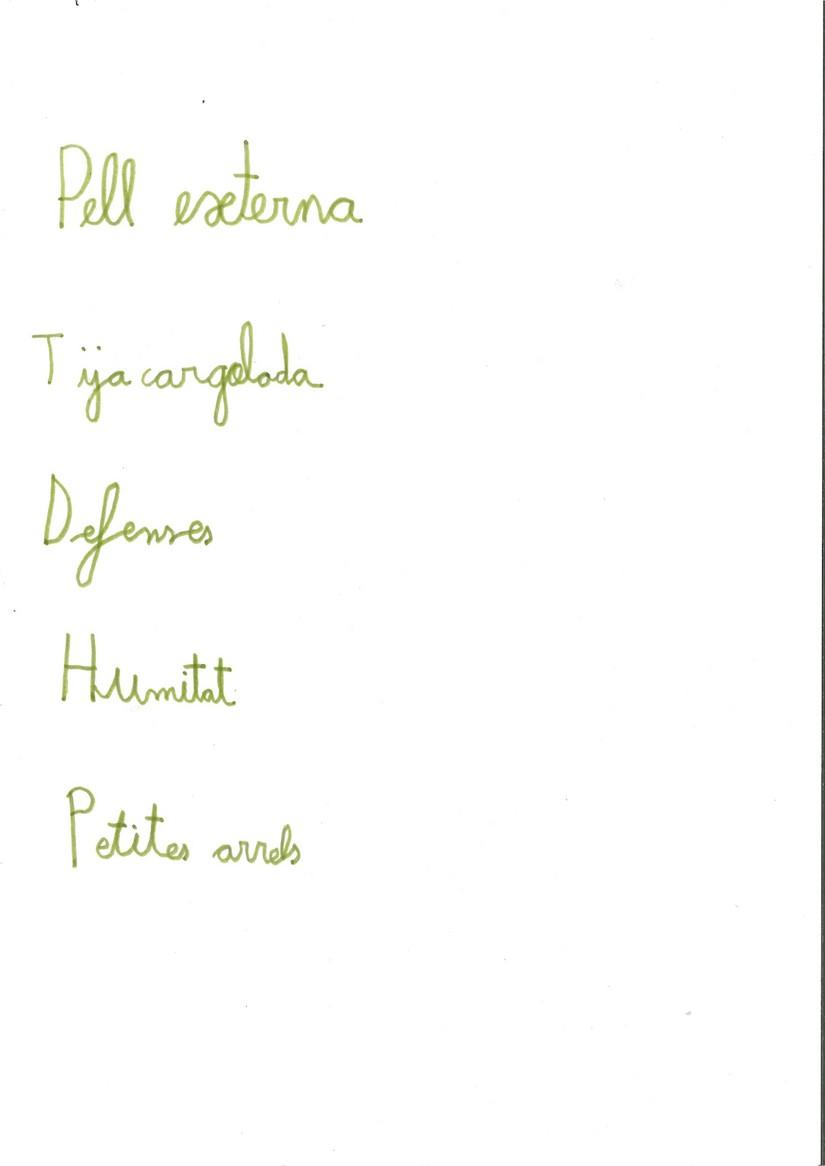 Pell externa
Tija cargolada
Defenses
Humitat
Petites arrels